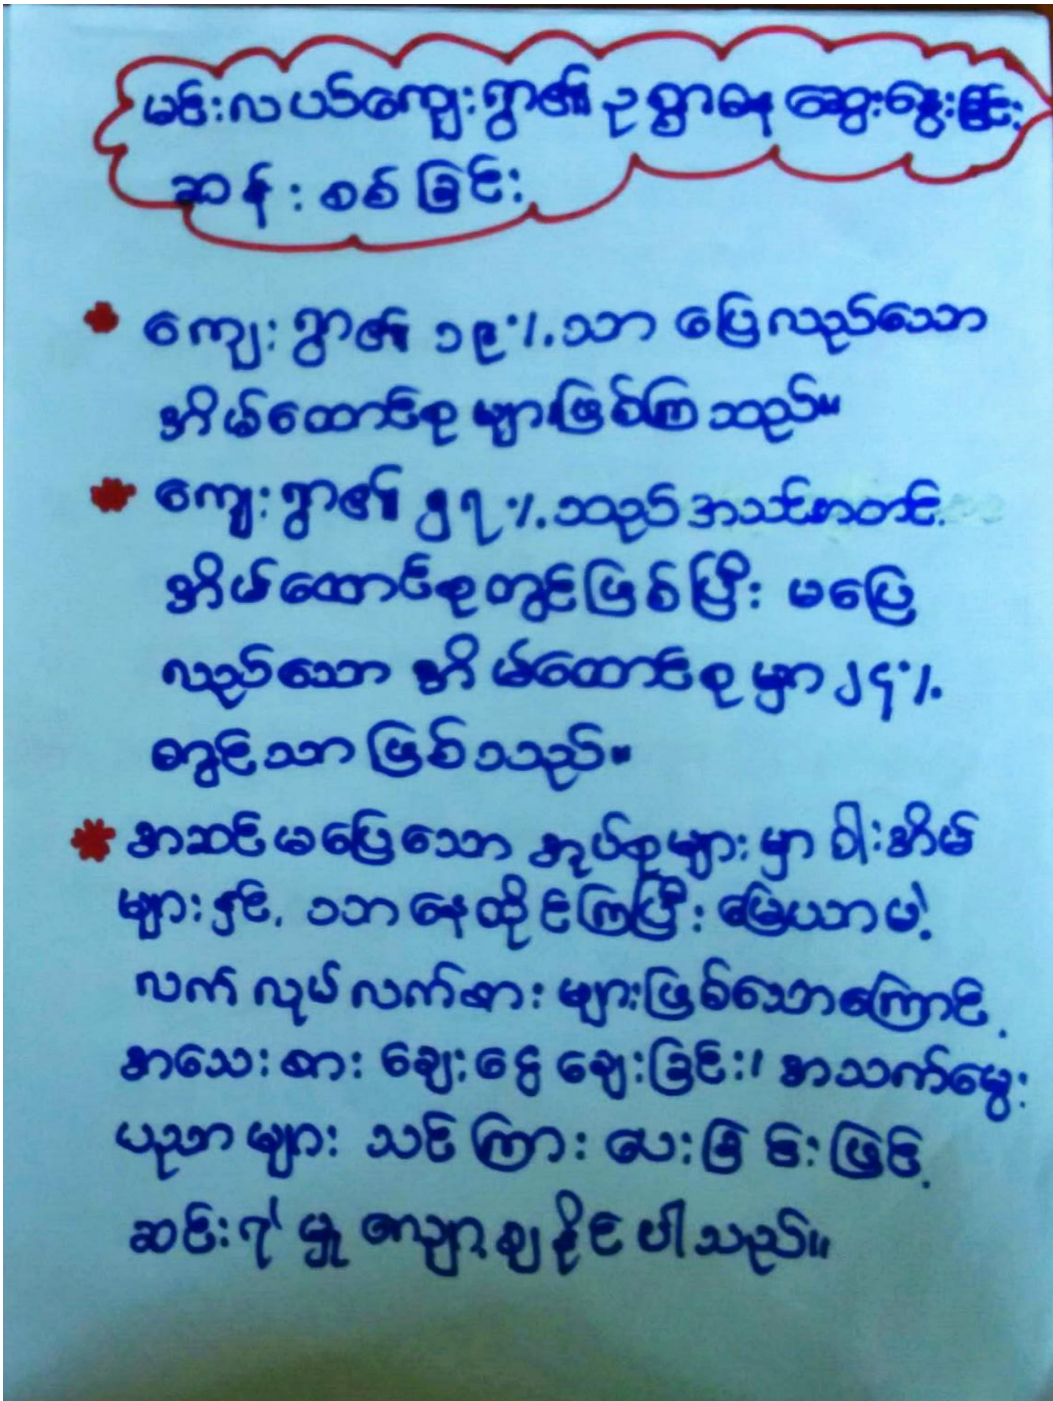 မင်းလယ်ကျေးရွာ၏ ဥစ္စာဓန ဆွေးနွေးခြင်း
ဆန်းစစ်ခြင်း
ကျေးရွာ၏ ၁၉% သာ ပြေလည်သော
အိမ်ထောင်စု များဖြစ်ကြသည်။
ကျေးရွာ၏ ၅၇% သည် အသင့်အတင့်
အိမ်ထောင်စုတွင်ဖြစ်ပြီး မပြေ
လည်သော အိမ်ထောင်စုမှာ ၂၄%
တွင်သာ ဖြစ်သည်။
အဆင်မပြေသော အုပ်စုများမှာ ဝါးအိမ်
များနှင့် သာနေထိုင်ကြပြီး မြေယာမဲ့
လက်လုပ်လက်စား များဖြစ်သောကြောင့်
အသေးစား ချေးငွေ ချေးခြင်း၊ အသက်မွေး
ပညာများ သင်ကြားပေးခြင်းဖြင့်
ဆင်းရဲမှု လျော့ချနိုင်ပါသည်။